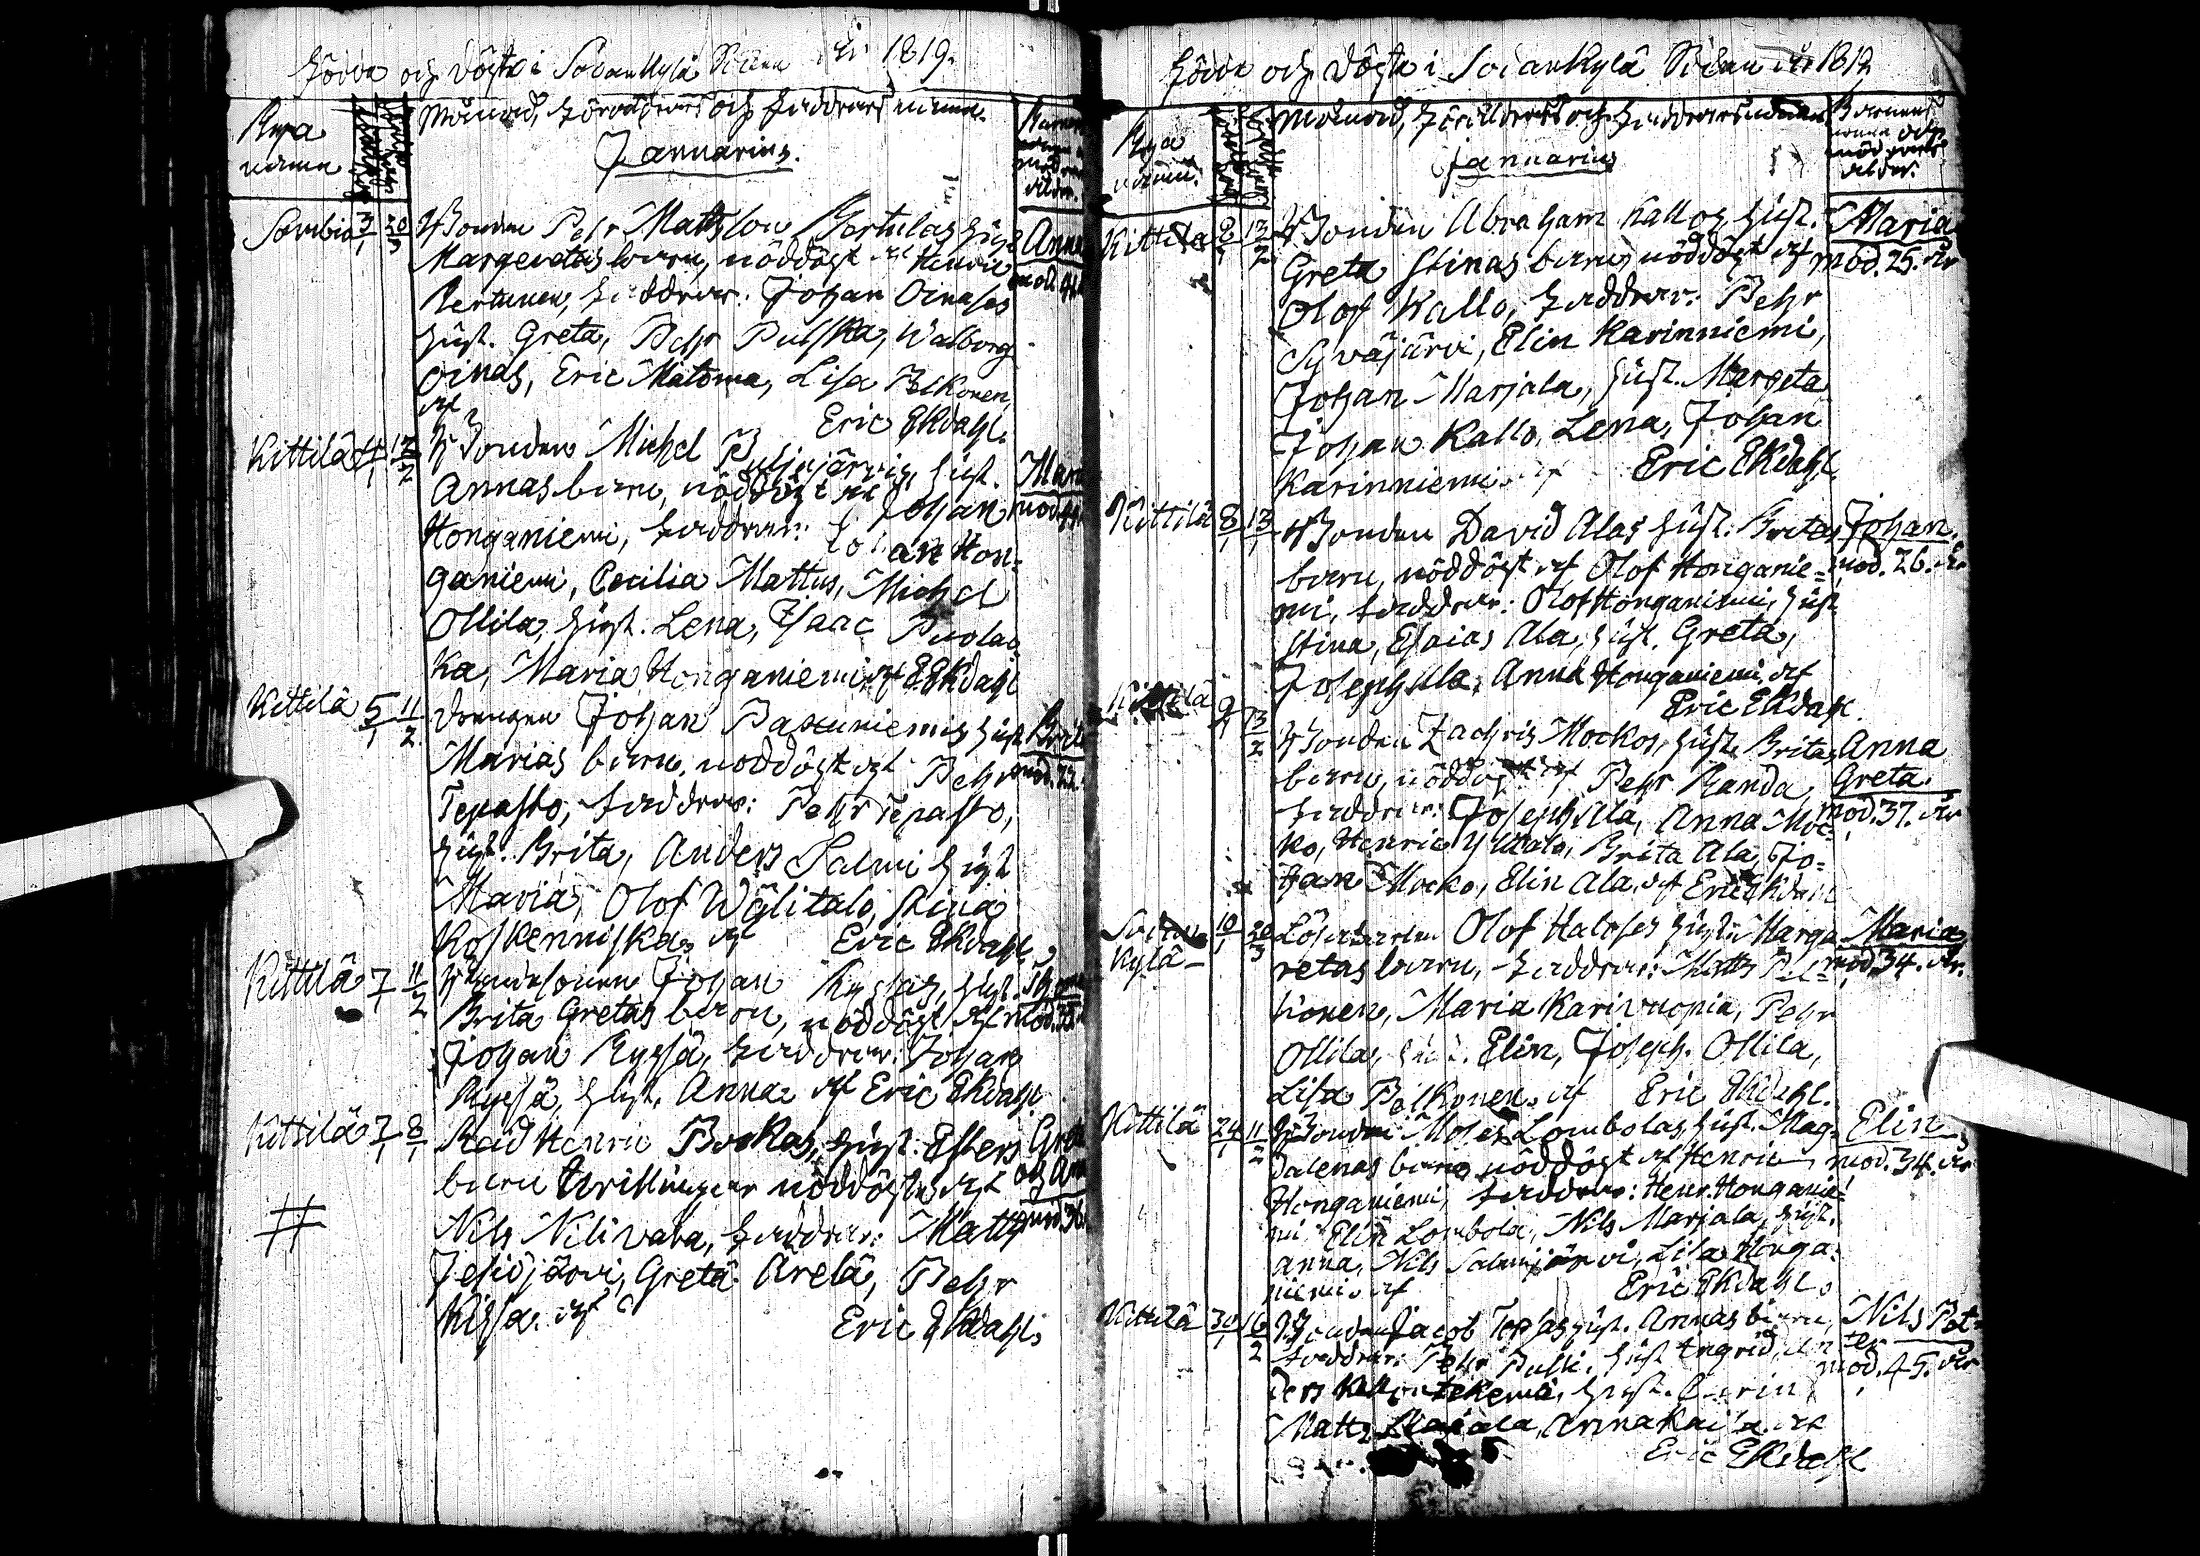 Födde och döpte i Sodankylä Socken år 1819.
Bya namn
Månad, Föräldrars och Faddrars namn.
Januarius.
Barnens namn mödrars ålder.
Sombio 3/1 20/3
Bonden Pehr Mattsson hust.
Margeretas barn, nöddöpt af Henric
Faddrar: Johan Oinas
hust. Greta, Pehr Pulska, Walborg
Oinas, Eric Matoma, Lisa Pelkonen
af
Eric Ekdahl.
Anna
mod.
Kittilä 4/1 12/2
Bonden Michel hust.
Annas barn, nöddöpt af Johan
Honganiemi, Faddrar: Johan Hon=
ganiemi, Cecilia Mattus, Michel
Ollila, hust. Lena, Isaac Puolac=
ka, Maria Honganiemi, af E Ekdahl
mod.
Kittilä 5/1 11/2
Drengen Johan hust.
Marias barn, nöddöpt af Pehr
Tepasto, Faddrar: Pehr Tepasto,
hust. Brita, Anders Salmi hust.
Maria, Olof Wälitalo, Stina
Koskenniska, af Eric Ekdahl
mod. 22.
Kittilä 7/1 11/2
Bondesonen Johan hust.
Brita Gretas barn, nöddöpt af
Johan Kyrsä, Faddrar: Johan
Kyrsä, hust. Anna af Eric Ekdahl
Kittilä 7/1 8/1
Henric hust. Esters
barn trillingar nöddöpte af
Nils Nilivara, Faddrar: Matts
Jesiöjärvi, Greta Arela, Pehr
af
Eric Ekdahl.
#
Födde och döpte i Sodankylä Socken år 1819
Bya namn.
Månad, Föräldrars och Faddrars namn
Januarius
Barnens namn och mödrars ålder.
Kittilä 8/1 13/2
Bonden Abraham Kallos hust.
Greta Stinas barn, nöddöpt af
Olof Kallo, Faddrar: Pehr
Syväjärvi, Elin Karinniemi,
Johan Marjala, hust. Margeta
Johan Kallo, Lena, Johan
Karinniemi af Eric Ekdahl
Maria
mod. 25. år
Kittilä 8/1 13/1
Bonden David Alas hust. Britas
barn, nöddöpt af Olof Honganie=
mi, Faddrar: Olof Honganiemi, hust
Stina, Esaias Ala, hust. Greta,
Joseph Ala, Anna Honganiemi, af
Eric Ekdahl.
Johan.
mod. 26. år
Kittilä 9/1 13/2
Bonden Zachris Mockos, hust. Britas
barn, nöddöpt af Pehr Randa
Faddrar: Joseph Ala, Anna Moc=
ko, Henric Ylitalo, Brita Ala, Jo=
han Mocko, Elin Ala, af Eric Ekdahl
Anna
Greta.
mod. 37. år
Sodan=
kylä 10/1 20/3
Olof Haloses hustru Marga
retas barn, Faddrar: Matts Pel=
konen, Maria Karivuopia, Pehr
Ollila, hust. Elin, Joseph Ollila,
Lisa Pelkonen, af Eric Ekdahl.
Maria
mod. 34. år.
Kittilä 24/1 11/2
Bonden Moses Lombolas hust. Mag=
dalenas barn nöddöpt af Henric
Honganiemi, Faddrar: Henr. Honganie=
mi Elin Lombola, Nils Marjala, hust.
Anna, Nils Salmijärvi, Lisa Honga=
niemi af Eric Ekdahl.
Elin
mod. 34. år
Kittilä 30/1 16/2
Bonden Jacob hust. Annas barn,
Faddrar: Pehr hust Ingrid, An
ders hust. Carin
Matts Anna af
Eric Ekdahl
Nils Pet=
ter
mod. 45. år